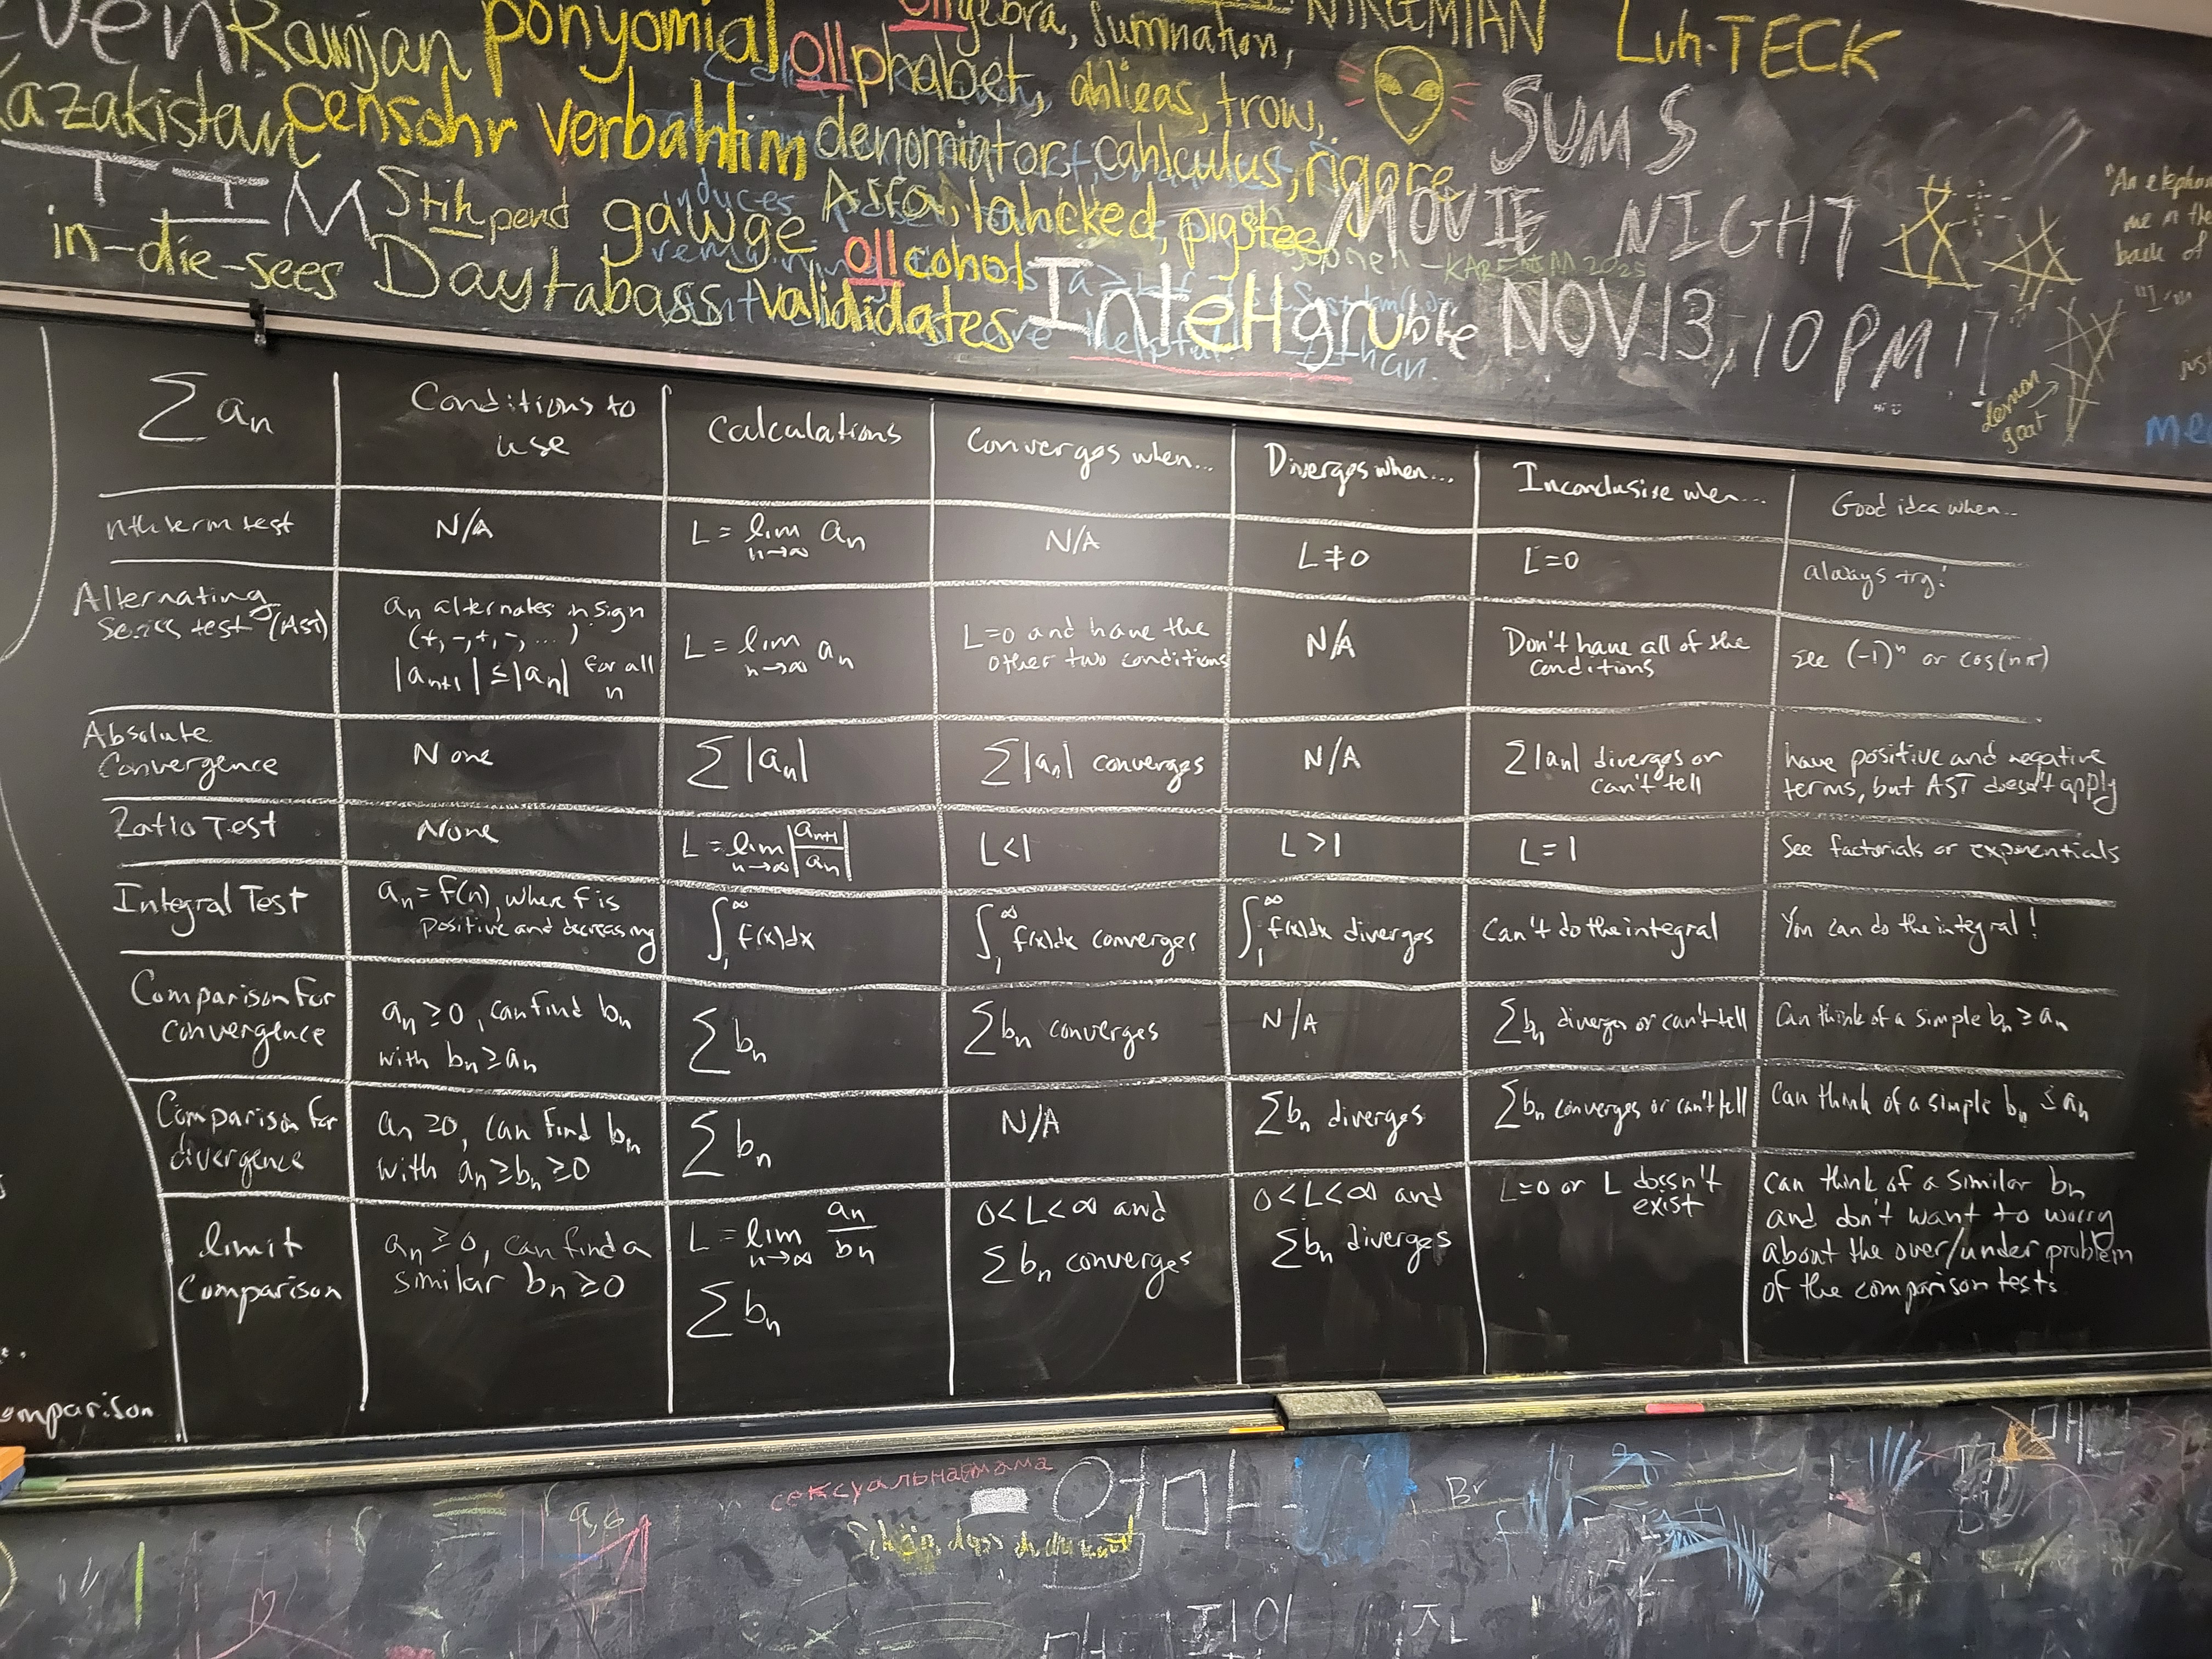 Ramjan ponyomial ollgebra, summation, NIKEMIAN Luh-TECK
Kazakistan Censohr verbahtim ollphabet, ahlieas, trow, SUMS
TTM Stihpend gawge denomiator, cahlculus, rigore MOVIE NIGHT
in-die-sees Daytabass valididates ollcohol Alfa, lahcked, pigstee NOV 13, 10 PM!
InteHgruble
KAREEM 2025
"An elephan
me n th
back of
demon
goat
jus
me
∑ aₙ | Conditions to use | Calculations | Converges when... | Diverges when... | Inconclusive when... | Good idea when...
nth term test | N/A | L = lim n→∞ aₙ | N/A | L ≠ 0 | L = 0 | always try!
Alternating Series test (AST) | aₙ alternates in sign (+, -, +, -, ...) |aₙ₊₁| ≤ |aₙ| for all n | L = lim n→∞ aₙ | L=0 and have the other two conditions | N/A | Don't have all of the conditions | see (-1)ⁿ or cos(nπ)
Absolute Convergence | None | ∑ |aₙ| | ∑ |aₙ| converges | N/A | ∑ |aₙ| diverges or can't tell | have positive and negative terms, but AST doesn't apply
Ratio Test | None | L = lim n→∞ |aₙ₊₁/aₙ| | L < 1 | L > 1 | L = 1 | See factorials or exponentials
Integral Test | aₙ = f(n), where f is positive and decreasing | ∫₁^∞ f(x)dx | ∫₁^∞ f(x)dx converges | ∫₁^∞ f(x)dx diverges | Can't do the integral | You can do the integral!
Comparison for convergence | aₙ ≥ 0, can find bₙ with bₙ ≥ aₙ | ∑ bₙ | ∑ bₙ converges | N/A | ∑ bₙ diverges or can't tell | Can think of a simple bₙ ≥ aₙ
Comparison for divergence | aₙ ≥ 0, can find bₙ with aₙ ≥ bₙ ≥ 0 | ∑ bₙ | N/A | ∑ bₙ diverges | ∑ bₙ converges or can't tell | Can think of a simple bₙ ≤ aₙ
limit Comparison | aₙ ≥ 0, can find a similar bₙ ≥ 0 | L = lim n→∞ aₙ/bₙ ∑ bₙ | 0 < L < ∞ and ∑ bₙ converges | 0 < L < ∞ and ∑ bₙ diverges | L=0 or L doesn't exist | can think of a similar bₙ and don't want to worry about the over/under problem of the comparison tests
omparison
сексуальная мама
엄마
Br